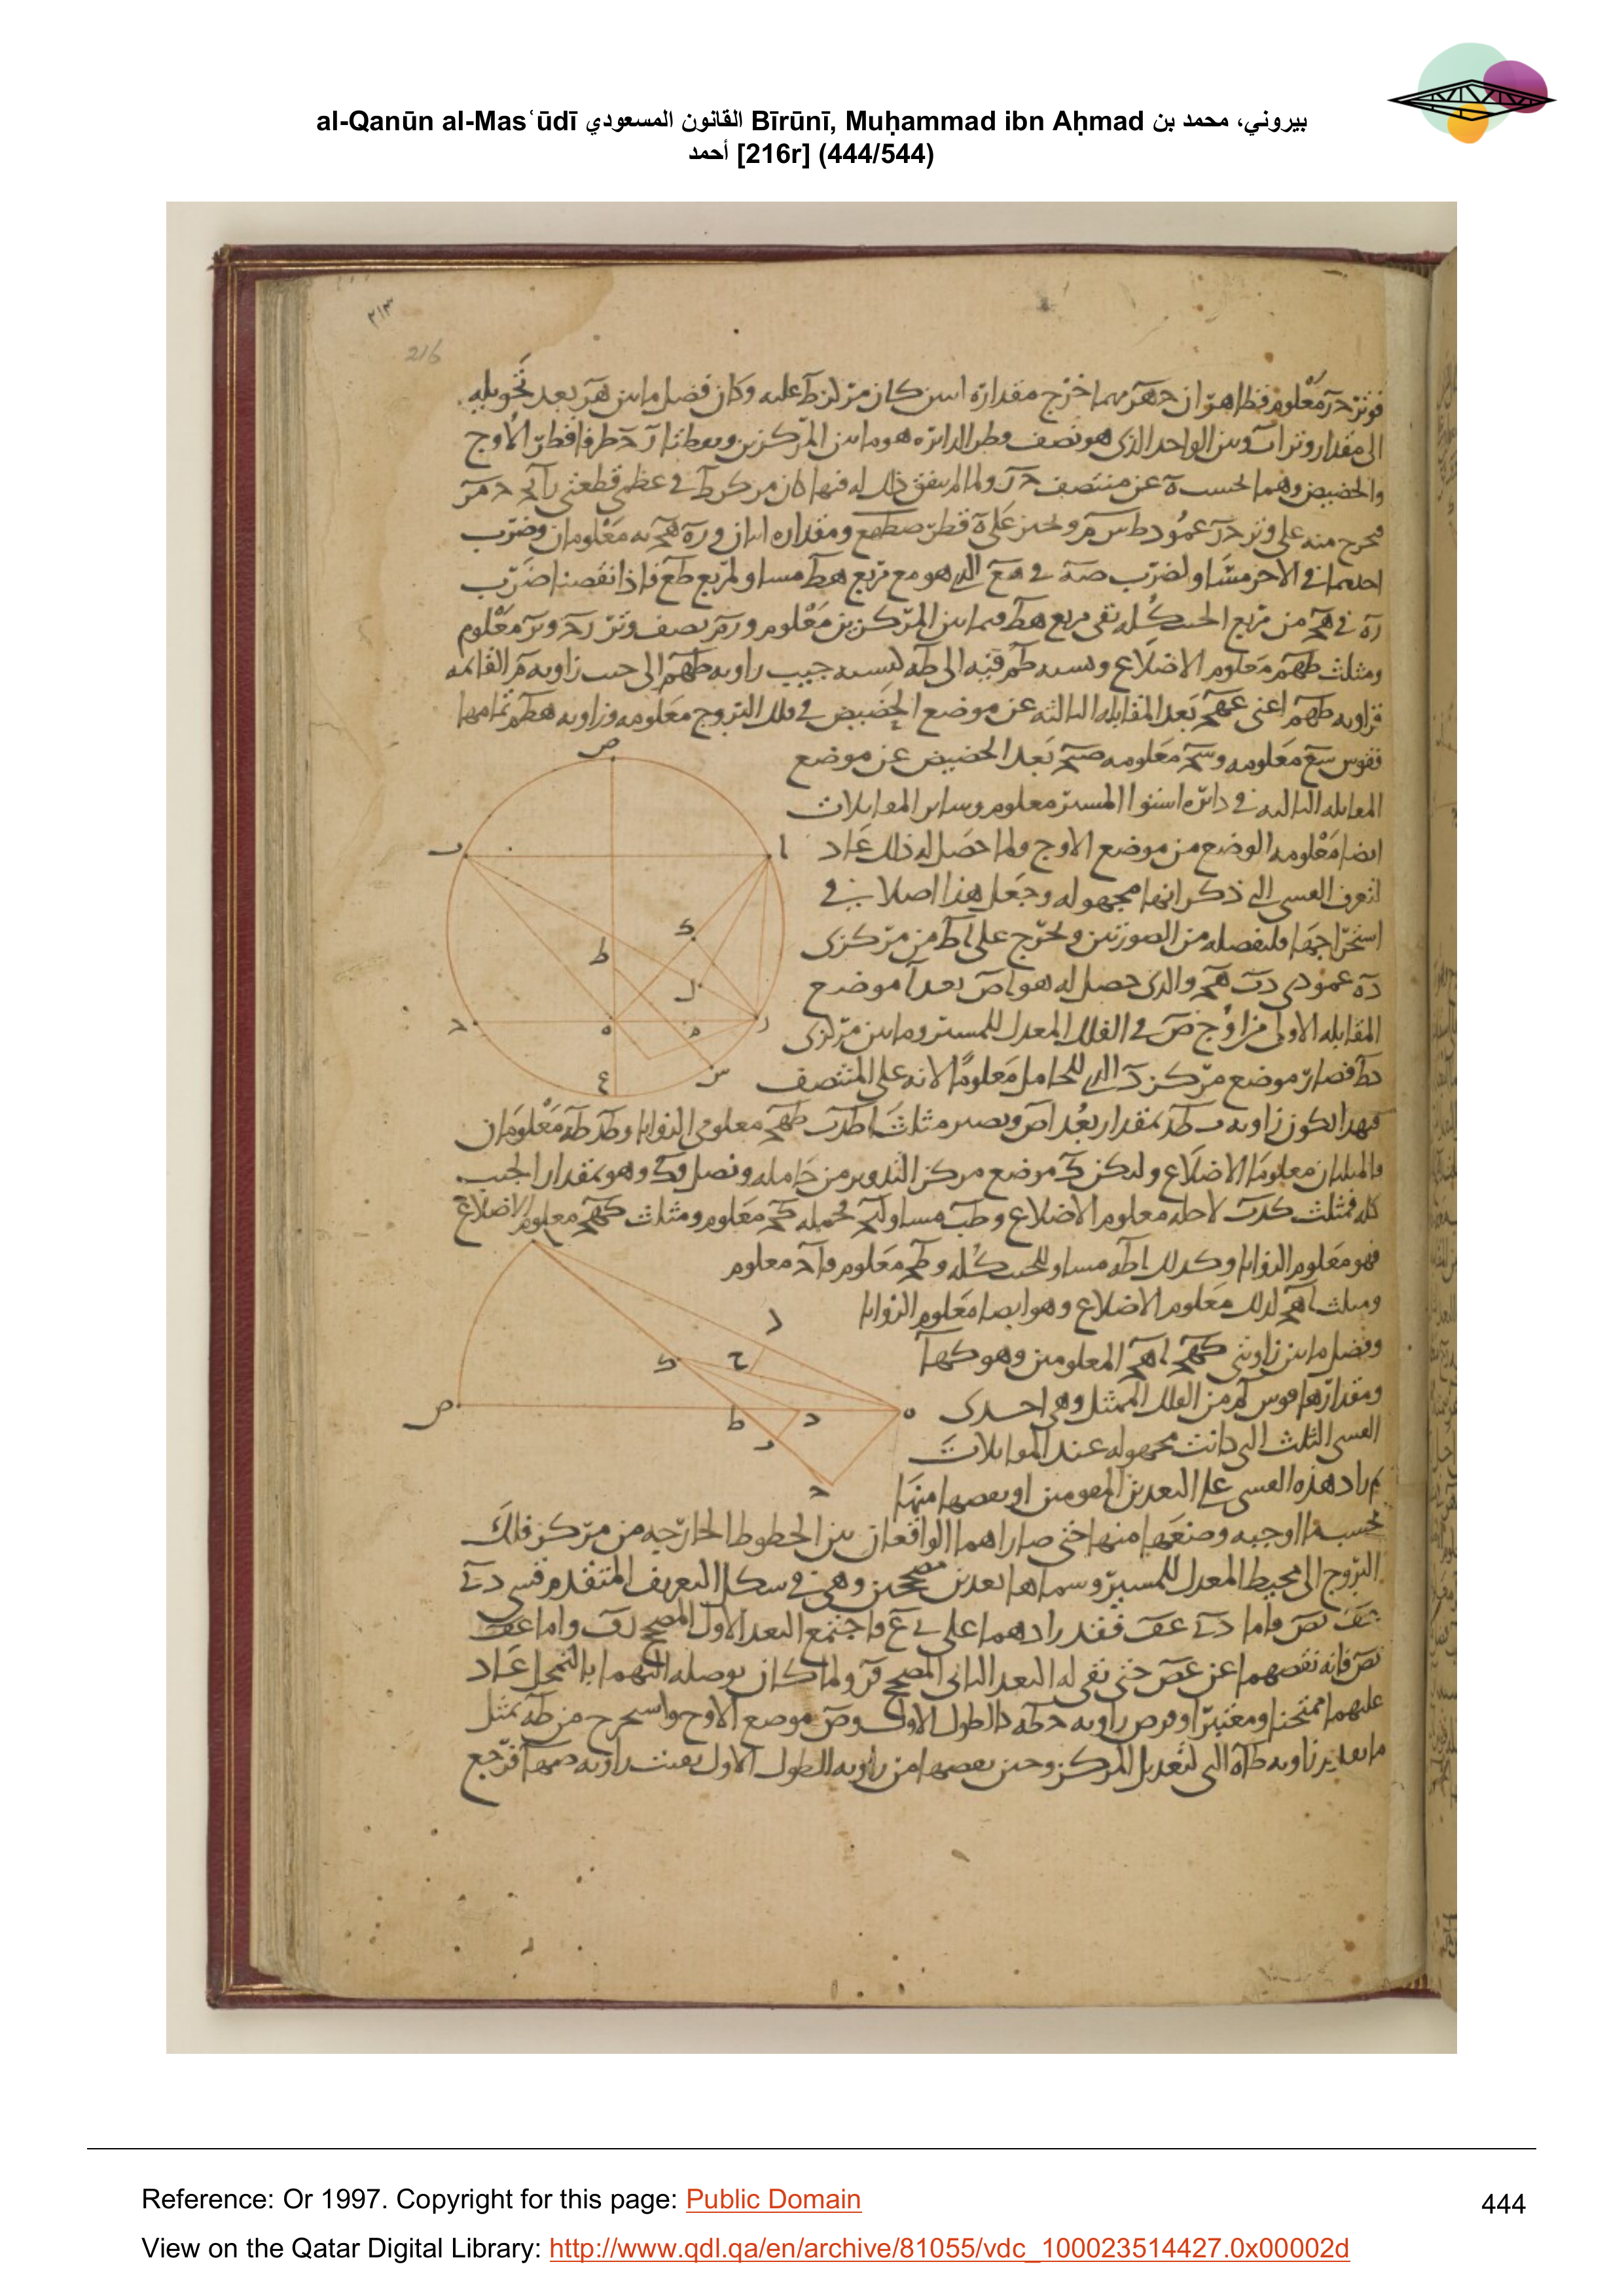 al-Qanūn al-Masʿūdī القانون المسعودي Bīrūnī, Muḥammad ibn Aḥmad بيروني، محمد بن
أحمد [216r] (444/544)
٢١٣
216
فوتر در معلوم فظاهر ان
الى مقدار وتر اب وبين الواحد الذى هو نصف قطر الدائره هو ما بين المركزين
والحضيض وهما بحسب ه عن منتصف
على وتر در عمود طس م ونجيز على ه قطر صطهع ومقداره
احدهما فى الاخر مساو لضرب صه فى هع الذى هو مع مربع هط مساو لمربع طع فاذا نقصنا ضرب
ره فى هح من مربع الجيب كله بقى مربع هط فما بين المركزين معلوم و رم نصف وتر رح وتر معلوم
ومثلث طهم معلوم الاضلاع ونسبه طم فيه الى طه كنسبه جيب زاويه طهم الى جيب زاويه م القائمه
فزاويه طهم اعنى عهح بعد المقابله الثالثه عن موضع الحضيض فى فلك البروج معلومه وزاويه هطم تمامها
فقوس سع معلومه و سح معلومه صح بعد الحضيض عن موضع
المقابله الثالثه فى دائره استوا المسير معلوم وساير المقابلات
ايضا معلومه الوضع من موضع الاوج ولما حصل له ذلك عاد
لتعرف القسى التى ذكر انها مجهوله وجعل هذا اصلا فى
استخراجها فلنفصله من الصورتين ونخرج على اط من مركزى
ده عمودى دب هح والذى حصل له هو اص بعد ا موضع
المقابله الاولى من اوج ص فى الفلك المعدل للمسير وما بين مركزى
دط فصار موضع مركز د الذى للحامل معلوما لانه على المنتصف
فبهذا تكون زاويه ب طد بمقدار بعد اص ويصير مثلثا طدب طهح معلومى الزوايا و طد طه معلومان
فالمثلثان معلوما الاضلاع وليكن ك موضع مركز التدوير من حامله ونصل دك وهو بمقدار الجيب
كله فمثلث كدب لاجله معلوم الاضلاع و طب مساو لبح فجمله كح معلوم ومثلث كهح معلوم الاضلاع
فهو معلوم الزوايا وكذلك اط مساو للجيب كله و طح معلوم فاح معلوم
ومثلث اهح لذلك معلوم الاضلاع وهو ايضا معلوم الزوايا
وفضل ما بين زاويتى كهح اهح المعلومين وهو كها
ومقدارها قوس لم من الفلك الممثل وهى احدى
القسى الثلث التى كانت مجهوله عند المقابلات
ثم زاد هذه القسى على البعدين المقومين او نقصها منها
بحسب ما اوجبه وضعها منها حتى صارا هما الواقعان بين الخطوط الخارجه من مركز فلك
البروج الى محيط المعدل للمسير وسماها بعدين مصححين وهى فى شكل التعريف المتقدم قسى
فقد زادهما على واجتمع البعد الاول المصحح
فانه نقصهما عن حتى بقى له البعد الثانى المصحح ولما كان توصله اليهما بالتمحل عاد
عليهما ممتحنا ومعتبرا وفرض زاويه حطه للطول الاول و ص موضع الاوج واستخرج من طه بمثل
ما تقدم زاويه طاه التى لتعديل المركز وحين نقصها من زاويه الطول الاول بقيت زاويه صها فرجع
ص
ا
ب
ك
ط
ل
ر
م
ه
ح
س
ع
ا
ل
ك
ح
ص
ط
د
ه
ب
ح
Reference: Or 1997. Copyright for this page: Public Domain
444
View on the Qatar Digital Library: http://www.qdl.qa/en/archive/81055/vdc_100023514427.0x00002d